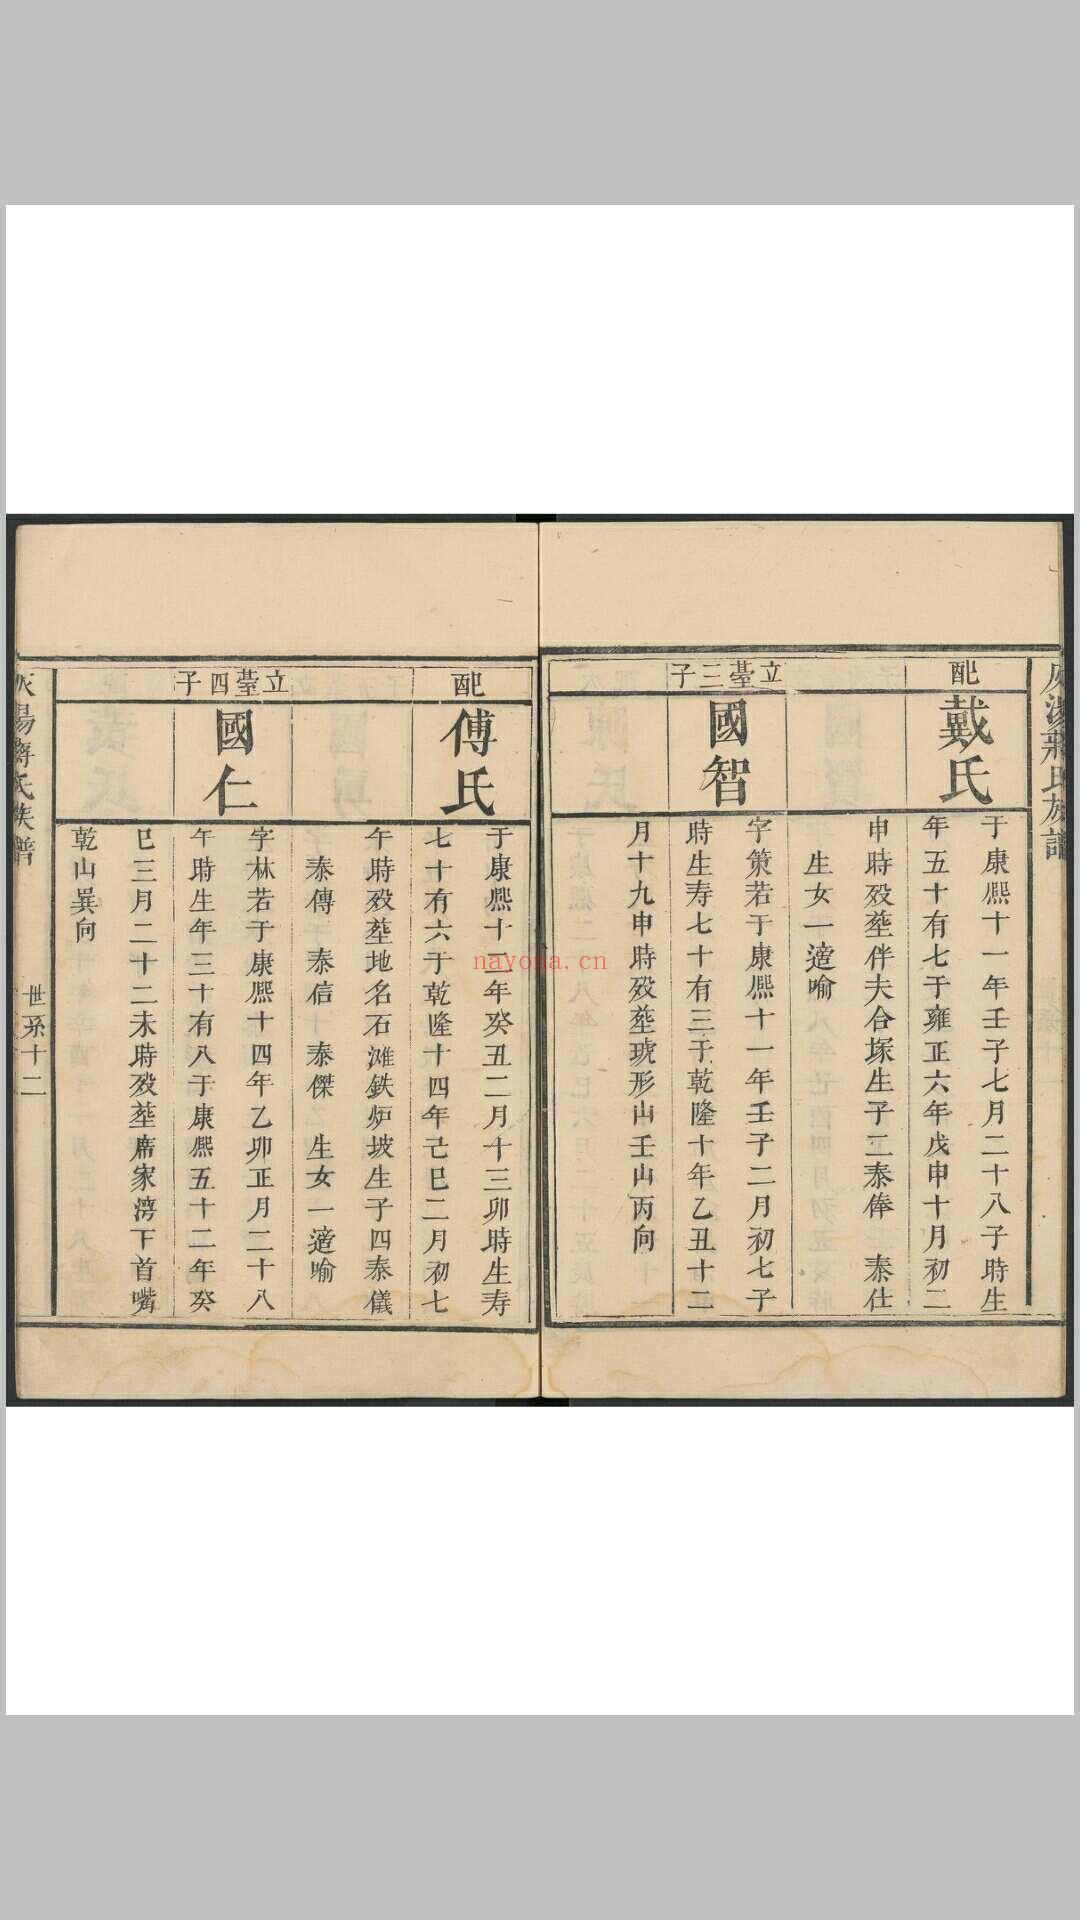 灰湯蔣氏族譜
配
戴氏
于康熙十一年壬子七月二十八子時生
年五十有七于雍正六年戊申十月初二
申時歿塟伴夫合塚生子二泰俸　泰仕
生女一適喻
立臺三子
國智
字策若于康熙十一年壬子二月初七子
時生寿七十有三于乾隆十年乙丑十二
月十九申時歿塟琥形山壬山丙向
配
傅氏
于康熙十二年癸丑二月十三卯時生寿
七十有六于乾隆十四年己巳二月初七
午時歿塟地名石滩鉄炉坡生子四泰儀
泰傳　泰信　泰傑　生女一適喻
立臺四子
國仁
字林若于康熙十四年乙卯正月二十八
午時生年三十有八于康熙五十二年癸
巳三月二十二未時歿塟席家涝下首嘴
乾山巽向
灰湯蔣氏族譜
世系十二
nayona.cn